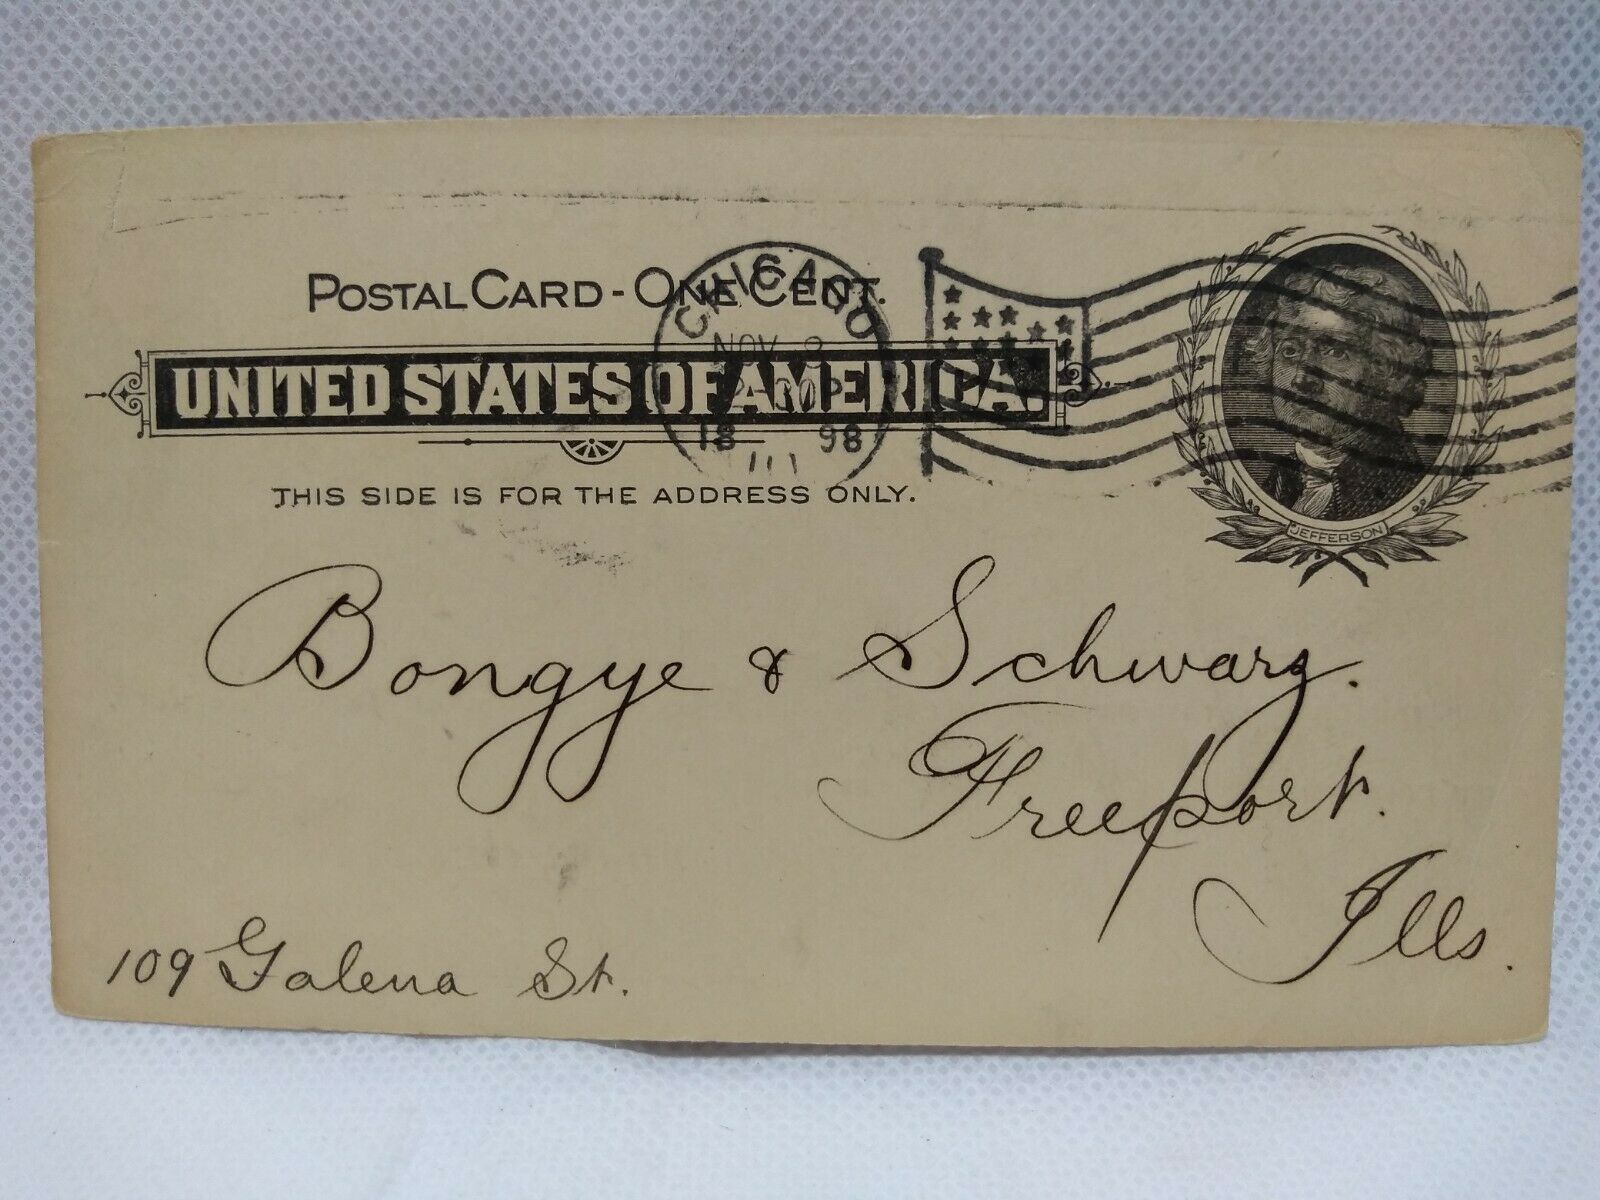 POSTAL CARD - ONE CENT.
CHICAGO
NOV
UNITED STATES OF AMERICA.
18 98
THIS SIDE IS FOR THE ADDRESS ONLY.
JEFFERSON
Bongye & Schwarz.
Freeport.
Ills.
109 Galena St.